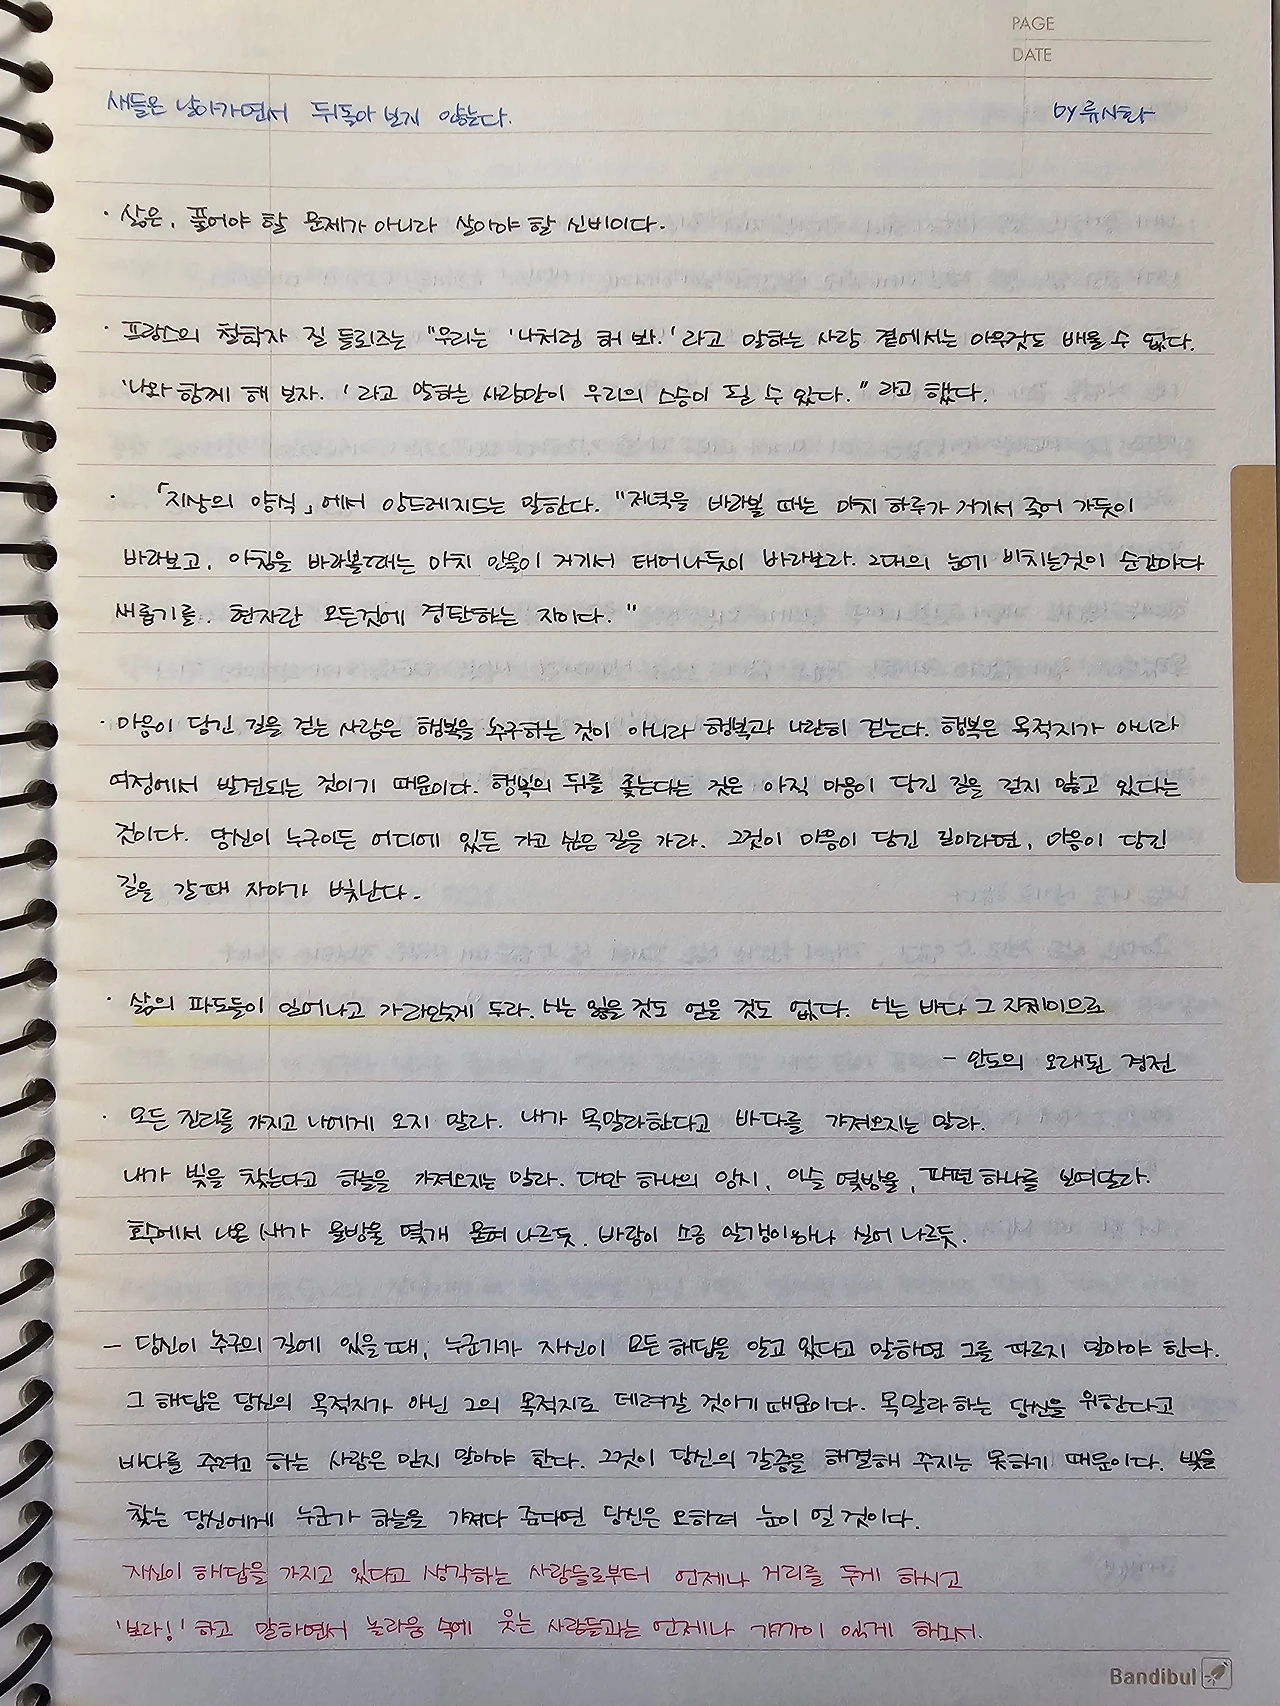 PAGE
DATE
새들은 날아가면서 뒤돌아 보지 않는다. by 류시화
· 삶은, 풀어야 할 문제가 아니라 살아야 할 신비이다.
· 프랑스의 철학자 질 들뢰즈는 "우리는 '나처럼 해 봐.' 라고 말하는 사람 곁에서는 아무것도 배울 수 없다.
'나와 함께 해 보자.' 라고 말하는 사람만이 우리의 스승이 될 수 있다." 라고 했다.
· 「지상의 양식」에서 앙드레지드는 말한다. "저녁을 바라볼 때는 마치 하루가 거기서 죽어 가듯이
바라보고, 아침을 바라볼때는 마치 만물이 거기서 태어나듯이 바라보라. 그대의 눈에 비치는것이 순간마다
새롭기를. 현자란 모든것에 경탄하는 자이다."
· 마음이 담긴 길을 걷는 사람은 행복을 추구하는 것이 아니라 행복과 나란히 걷는다. 행복은 목적지가 아니라
여정에서 발견되는 것이기 때문이다. 행복의 뒤를 좇는다는 것은 아직 마음이 담긴 길을 걷지 않고 있다는
것이다. 당신이 누구이든 어디에 있든 가고 싶은 길을 가라. 그것이 마음이 담긴 길이라면, 마음이 담긴
길을 갈때 자아가 빛난다.
· 삶의 파도들이 일어나고 가라앉게 두라. 너는 잃을 것도 얻을 것도 없다. 너는 바다 그 자체이므로
- 인도의 오래된 경전
· 모든 진리를 가지고 나에게 오지 말라. 내가 목말라한다고 바다를 가져오지는 말라.
내가 빛을 찾는다고 하늘을 가져오지는 말라. 다만 하나의 암시, 이슬 몇방울, 파편 하나를 보여달라.
호수에서 나온 새가 물방울 몇개 묻혀 나르듯. 바람이 소금 알갱이하나 실어 나르듯.
- 당신이 추구의 길에 있을 때, 누군가가 자신이 모든 해답을 알고 있다고 말하면 그를 따르지 말아야 한다.
그 해답은 당신의 목적지가 아닌 그의 목적지로 데려갈 것이기 때문이다. 목말라 하는 당신을 위한다고
바다를 주려고 하는 사람은 믿지 말아야 한다. 그것이 당신의 갈증을 해결해 주지는 못하기 때문이다. 빛을
찾는 당신에게 누군가 하늘을 가져다 준다면 당신은 오히려 눈이 멀 것이다.
자신이 해답을 가지고 있다고 생각하는 사람들로부터 언제나 거리를 두게 하시고
'보라!' 하고 말하면서 놀라움 속에 웃는 사람들과는 언제나 가까이 있게 하소서.
Bandibul